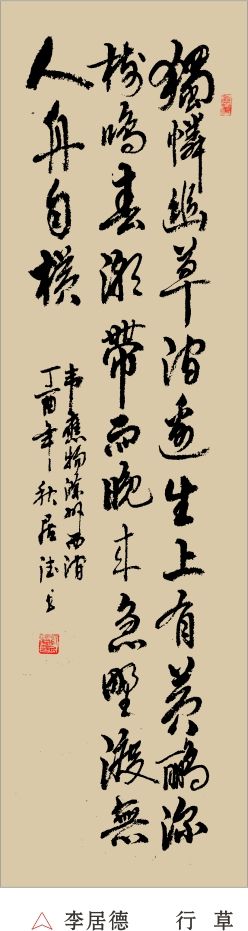 獨憐幽草澗邊生上有黃鸝深
樹鳴春潮帶雨晚來急野渡無
人舟自橫
韋應物滁州西澗
丁酉年秋居德书
李居德 行草